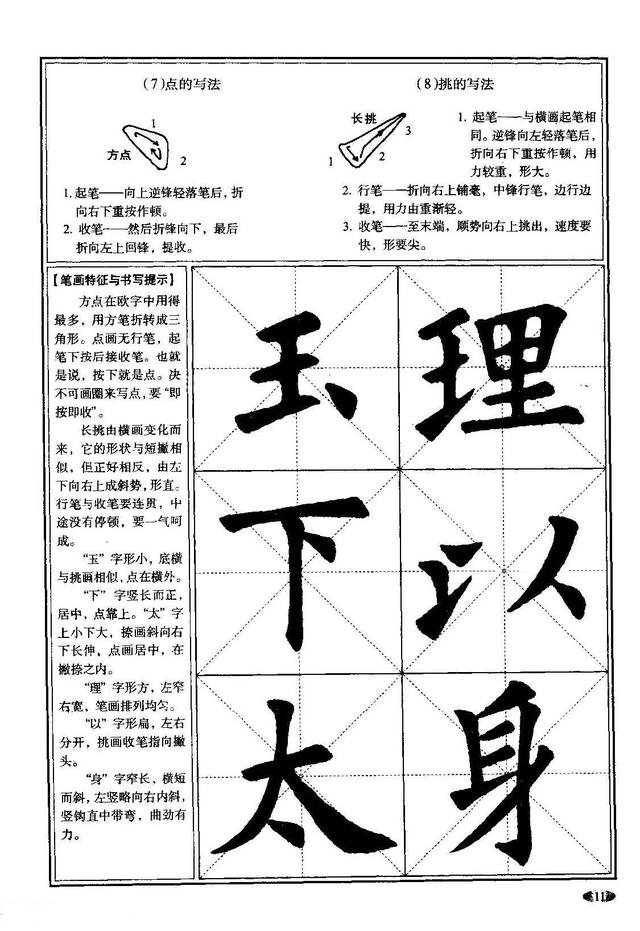 (7)点的写法
1
方点
2
1.起笔——向上逆锋轻落笔后,折
向右下重按作顿。
2. 收笔——然后折锋向下,最后
折向左上回锋,提收。
(8)挑的写法
长挑
3
1
2
1. 起笔——与横画起笔相
同。逆锋向左轻落笔后,
折向右下重按作顿,用
力较重,形大。
2. 行笔——折向右上铺毫,中锋行笔,边行边
提,用力由重渐轻。
3. 收笔——至末端,顺势向右上挑出,速度要
快,形要尖。
【笔画特征与书写提示】
方点在欧字中用得
最多,用方笔折转成三
角形。点画无行笔,起
笔下按后接收笔。也就
是说,按下就是点。决
不可画圈来写点,要“即
按即收”。
长挑由横画变化而
来,它的形状与短撇相
似,但正好相反,由左
下向右上成斜势,形直。
行笔与收笔要连贯,中
途没有停顿,要一气呵
成。
“玉”字形小,底横
与挑画相似,点在横外。
“下”字竖长而正,
居中,点靠上。“太”字
上小下大,捺画斜向右
下长伸,点画居中,在
撇捺之内。
“理”字形方,左窄
右宽,笔画排列均匀。
“以”字形扁,左右
分开,挑画收笔指向撇
头。
“身”字窄长,横短
而斜,左竖略向右内斜,
竖钩直中带弯,曲劲有
力。
玉 理
下 以
太 身
11